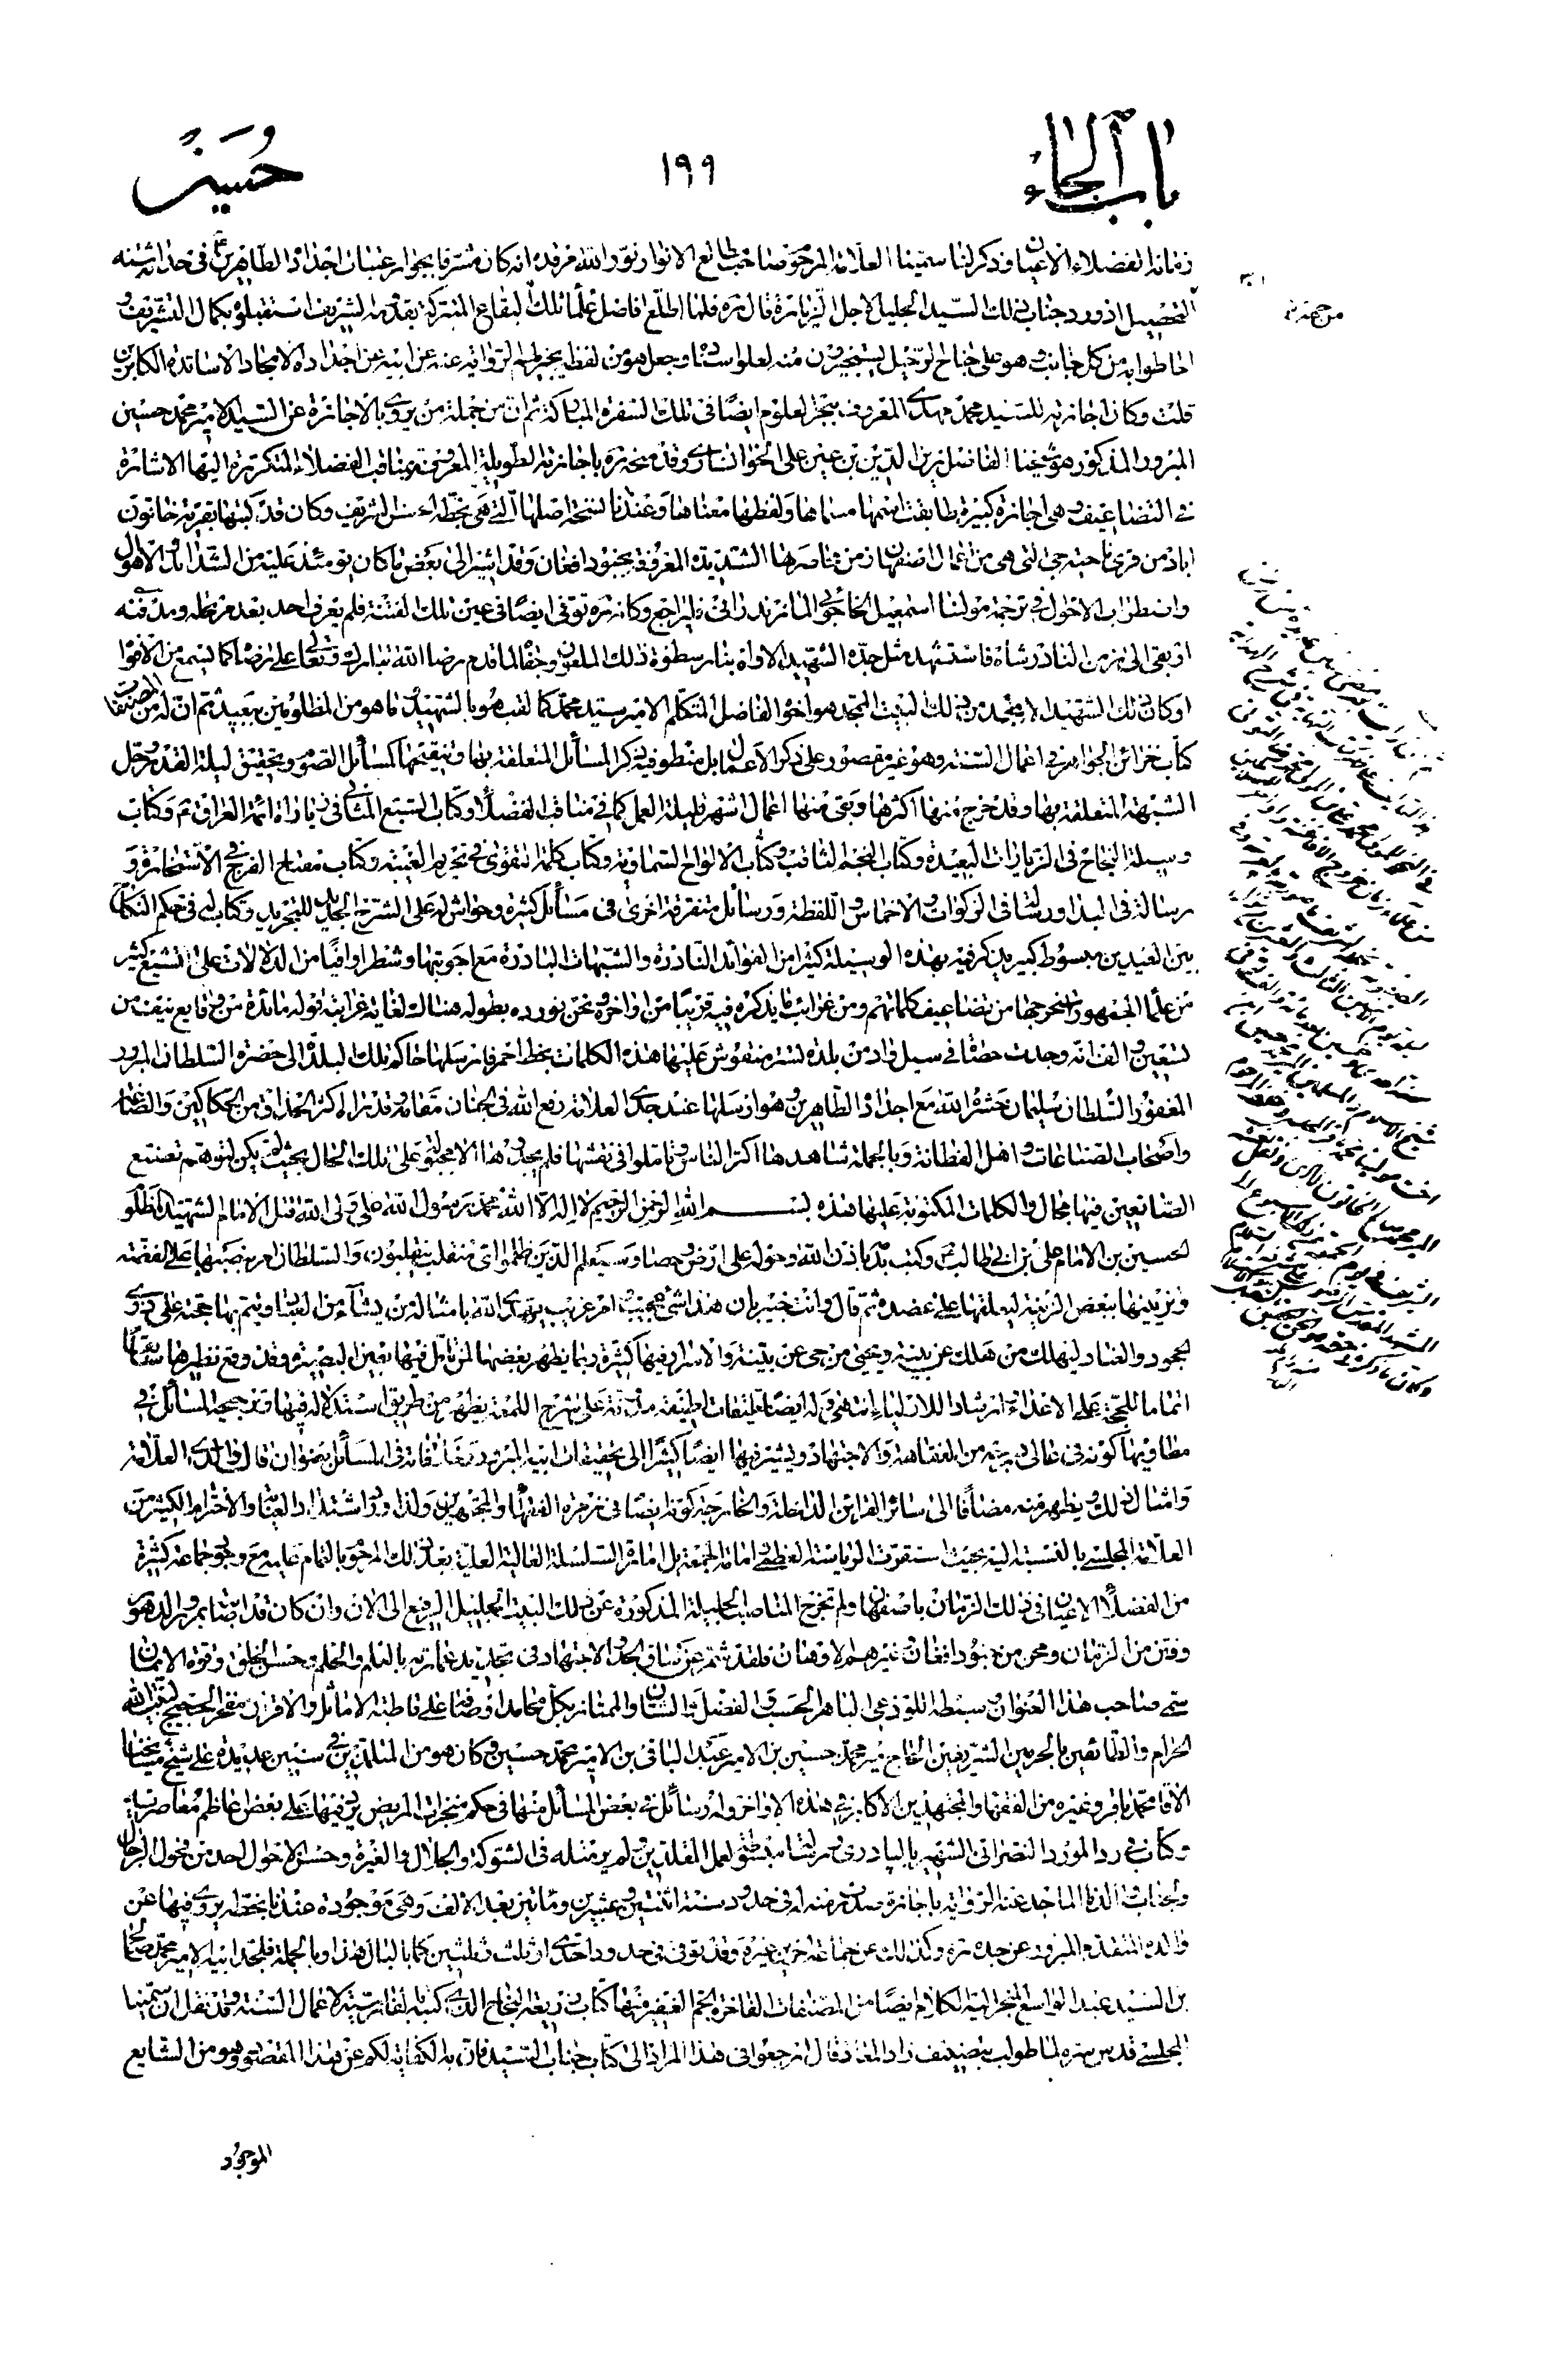 باب الحاء
١٩٩
حسين
زمانه الفضلاء الاعيان وذكر لنا سمينا العلامة المرحوم صاحب مطالع الانوار نور الله مرقده انه كان متشرفا بجوار عتبات اجداده الطاهرين في حداثة سنه
التحصيل اذ ورد جناب ذلك السيد الجليل لاجل الزيارة قال ره فلما اطلع افاضل علماء تلك البقاع المتبركة بقدومه الشريف استقبلوه بكمال التشريف و
احاطوا به من كل جانب وهو على جناح الرحيل يستجيزون منه لعلو اسناده وجعل هو من لفظه يجيز لهم الرواية عنه عن ابيه عن اجداده الامجاد الاساتذة الكابرين
قلت وكان اجازته للسيد محمد مهدي المعروف ببحر العلوم ايضا في تلك السفرة المباركة ثم ان من جملة من يروي بالاجازة عن السيد الامير محمد حسين
المبرور المذكور هو شيخنا الفاضل زين الدين بن عين على الخوانساري وقد منحه ره باجازته الطويلة المعروفة بمناقب الفضلاء المتكررة اليها الاشارة
في التضاعيف وهي اجازة كبيرة طابقت اسمها مسماها ولفظها معناها وعندنا نسخة اصلها التي هي بخطه الشريف وكان قد كتبها بقرية خاتون
اباد من قرى ناحية جي التي هي من اعمال اصفهان زمن محاصرتها الشديدة المعروفة بجنود افغان وقد اشير الى بعض ما كان يومئذ عليه من الشدائد والاهوال
واضطراب الاحوال في ترجمة مولينا اسمعيل الخاجوئي المازندراني فليراجع وكانه ره توفى ايضا في عين تلك الفتنة فلم يعرف احد بعد مرتحله ومدفنه
او بقي الى زمن النادر شاه فاستشهد مثل جده الشهيد الاواه بنار سطوة ذلك الملعون وجفا لما قدم رضا الله تبارك وتعالى على رضاه كما يسمع من الافواه
او كان ذلك الشهيد الامجد من ذلك البيت الممجد هو اخو الفاضل المتكلم الامير سيد محمد كما لقب هو بالشهيد وما هو من المظلومين ببعيد ثم ان له من المصنفات
كتاب خزائن الجواهر في اعمال السنة وهو غير مقصور على ذكر الاعمال بل منطو فيه ذكر المسائل المتعلقة بها وتنقيتها كمسائل الصوم وتحقيق ليلة القدر وحل
الشبهة المتعلقة بها وقد خرج منها اكثرها وبقي منها اعمال اشهر قليلة العمل كما في مناقب الفضلاء وكتاب السبع المثاني في زيارة ائمة العراق ع وكتاب
وسيلة النجاح في الزيارات البعيدة وكتاب النجم الثاقب وكتاب الالواح السماوية وكتاب كلمة التقوى في تحريم الغيبة وكتاب مفتاح الفرج في الاستخارة و
رسالة في البداء ورسالتا في الزكوات والاخماس واللقطة ورسائل متفرقة اخرى في مسائل كثيرة وحواش له على الشرح الجديد للتجريد وكتاب له في حكم النكاح
بين العيدين مبسوط كبير يذكر فيه بهذه الوسيلة كثيرا من الفوائد النادرة والشبهات البادرة مع اجوبتها وشطرا وافيا من الدلالات على تشيع كثير
من علماء الجمهور واستخرجها من تضاعيف كلماتهم ومن غرائب ما يذكره فيه قريبا من اواخره ونحن نورده بطوله هنالك لغاية غرابته قوله فائدة من وقايع نيف من
تسعين والف انه وجدت حصاة في سيل واد من بلدة تستر منقوش عليها هذه الكلمات بخط احمر فارسلها حاكم تلك البلدة الى حضرة السلطان المبرور
المغفور السلطان سليمان حشره الله مع اجداده الطاهرين وهو ارسلها عند جدي العلامة رفع الله في الجنان مقامه وقد رآه اكثر الحذاق من الحكاكين والصاغة
واصحاب الصناعات واهل الفطانة وبالجملة شاهدها اكثر الناس وتاملوا في نقشها فلم يجدوها الا مجبولة على تلك الحال بحيث لم يكن لتوهم تصنع
الصانعين فيها مجال والكلمات المكتوبة عليها هذه بسم الله الرحمن الرحيم لا اله الا الله محمد رسول الله علي ولي الله قتل الامام الشهيد المظلوم
الحسين بن الامام علي بن ابي طالب ع وكتب بدمه باذن الله وحوله على ارض وحصا وسيعلم الذين ظلموا اي منقلب ينقلبون والسلطان امر بنصبها على الفضة
وتزيينها ببعض الزينة ليعلقها على عضده ثم قال وانت خبير بان هذا شيء عجيب وامر غريب يهدي الله بامثاله من يشاء من العباد ويتم بها حجته على ذوي
الجحود والعناد ليهلك من هلك عن بينة ويحيى من حي عن بينة والاسرار فيها كثيرة ربما يظهر بعضها لمن تامل فيها بعين البصيرة وقد وقع نظيرها سابقا
اتماما للحجة على الاعداء وارشادا للاولياء انتهى وله ايضا تعليقات لطيفة مدونة على شرح اللمعة يظهر من طريق استدلاله فيها وترجيحه المسائل في
مطاويها كونه في عالي درجة من الفقاهة والاجتهاد ويشير فيها ايضا كثيرا الى تحقيقات ابيه المبرور في المسائل بعنوان قال والدي العلامة
وامثال ذلك ويظهر منه مضافا الى سائر القرائن الداخلة والخارجة كونه ايضا في زمرة الفقهاء والمجتهدين ولذا ورد اشتداد العناية والاحترام الكثير من
العلامة المجلسي بالنسبة اليه بحيث استقرت الرياسة العظمى وامامة الجمعة بل امامة السلسلة العالية العلية بعد ذلك المرحوم بالتمام عليه مع وجود جماعة كثيرة
من الفضلاء الاعيان في ذلك الزمان باصفهان ولم تخرج المناصب الجليلة المذكورة عن ذلك البيت الجليل الرفيع الى الان وان كان قد اصابه مرور الدهور
وفتن من الزمان ومحن من جنود افغان وغيرهم لاوهنان فلقد شمر عن ساق الجد والاجتهاد في تجديد عمارته بالعلم والحلم وحسن الخلق وقوة الايمان
سمي صاحب هذا العنوان وسبطه اللوذعي الباهر الحسب والفضل والشان والممتاز بكل محامد اوصافه على قاطبة الاماثل والاقران مفخر الحجيج لبيت الله
الحرام والطائفين بالحرمين الشريفين الحاج مير محمد حسين بن الامير عبد الباقي بن الامير محمد حسين وكان هو من المتلمذين في سنين عديدة على شيخ مشايخنا
الاقا محمد باقر وغيره من الفقهاء والمجتهدين الاكابر في هذه الاواخر وله رسائل في بعض المسائل منها في حكم منجزات المريض يرد فيها على بعض اعاظم معاصريه
وكتاب في رد المورد النصراني الشهير بالپادري ورسالتا مبسوطة لعمل المقلدين ولم ير مثله في الشوكة والجلال والغيرة وحسن الاحوال احد من فحول الرجال
ولجناب والدنا الماجد عنه الرواية باجازة صدرت منه له في حدود سنة اثنتين وعشرين ومأتين بعد الالف وهي موجودة عندنا بخطه يروي فيها عن
والده المتقدم المبرور عن جده ره وكذلك عن جماعة اخرين غيره وقد توفى في حدود احدى او ثلث وثلثين كما بالبال هذا وبالجملة فلجد ابيه الامير محمد صالح
بن السيد عبد الواسع المنجر اليه الكلام ايضا من المصنفات الفاخرة الجم الغفير منها كتاب ذريعة النجاح الذي كتبه بالفارسية لاعمال السنة وقد نقل ان سمينا
المجلسي قدس سره لما طولب بتصنيف زاد المعاد قال ارجعوا في هذا المراد الى كتاب جناب السيد فان به الكفاية لكم عن هذا المقصد وهو من الشايع
الموجود